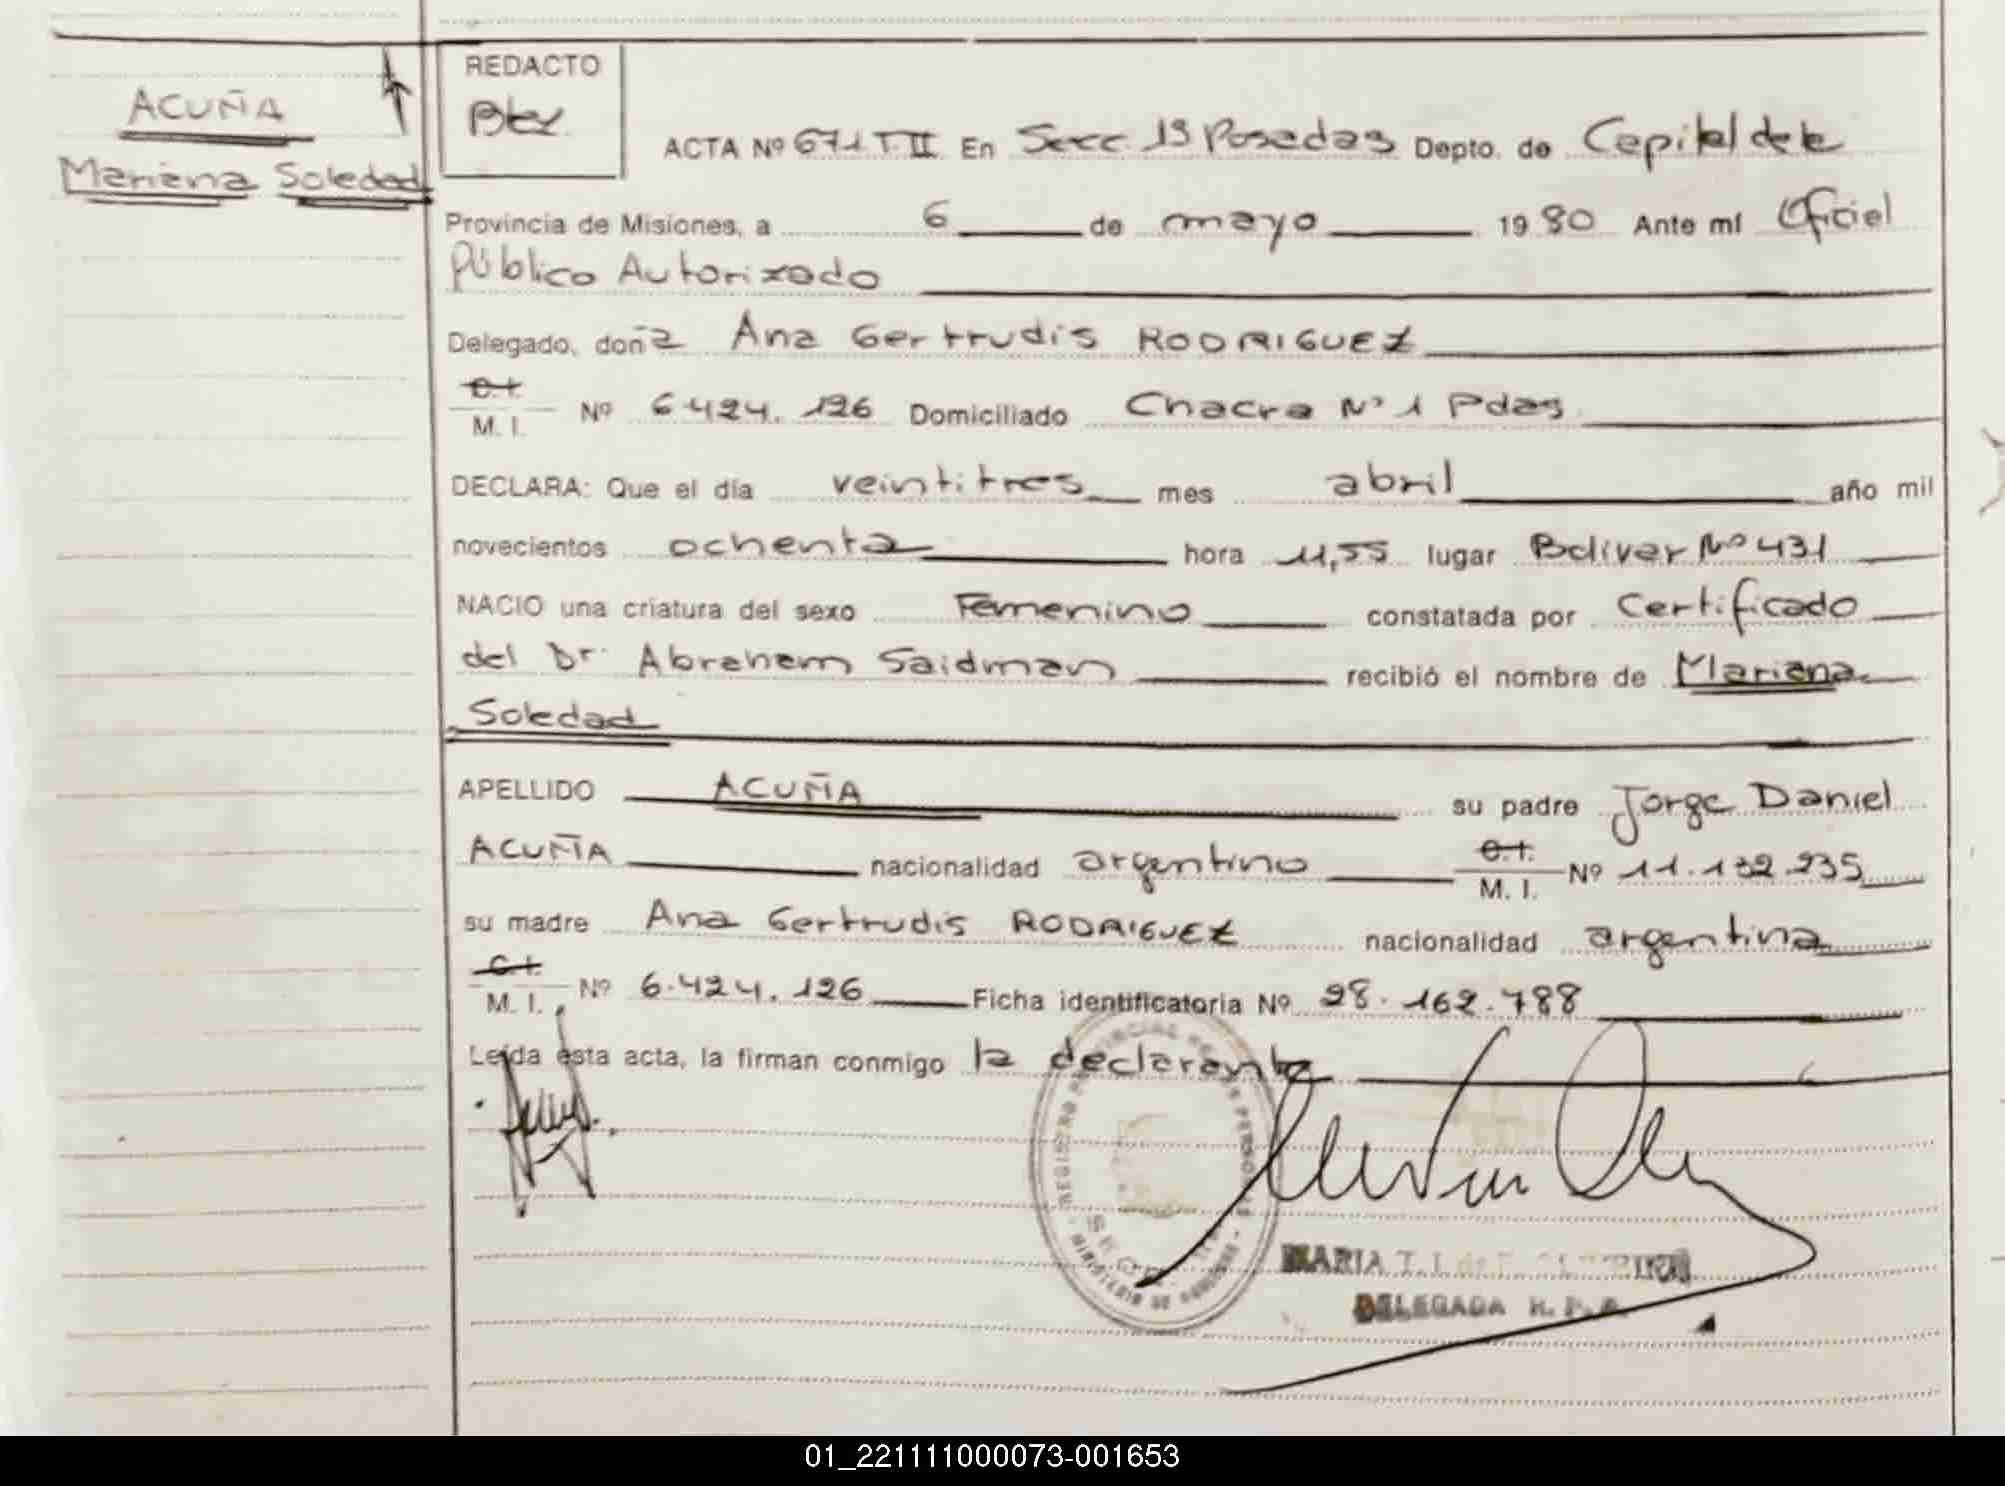 ACUÑA
Mariana Soledad
REDACTO
ACTA Nº 671 T.II En Secc. 1ª Posadas Depto. de Capital de la
Provincia de Misiones, a 6 de mayo 1980 Ante mí Oficial
Público Autorizado
Delegado, doña Ana Gertrudis RODRIGUEZ
C.I.
M. I. Nº 6.424.126 Domiciliado Chacra Nº 1 Pdas
DECLARA: Que el día veintitres mes abril año mil
novecientos ochenta hora 11,55 lugar Bolivar Nº 431
NACIO una criatura del sexo Femenino constatada por Certificado
del Dr. Abraham Saidman recibió el nombre de Mariana
Soledad
APELLIDO ACUÑA su padre Jorge Daniel
ACUÑA nacionalidad argentino C.I. M. I. Nº 11.132.235
su madre Ana Gertrudis RODRIGUEZ nacionalidad argentina
C.I.
M. I. Nº 6.424.126 Ficha identificatoria Nº 28.162.788
Leída ésta acta, la firman conmigo la declarante
MARIA T.
DELEGADA R. P. P.
01_221111000073-001653